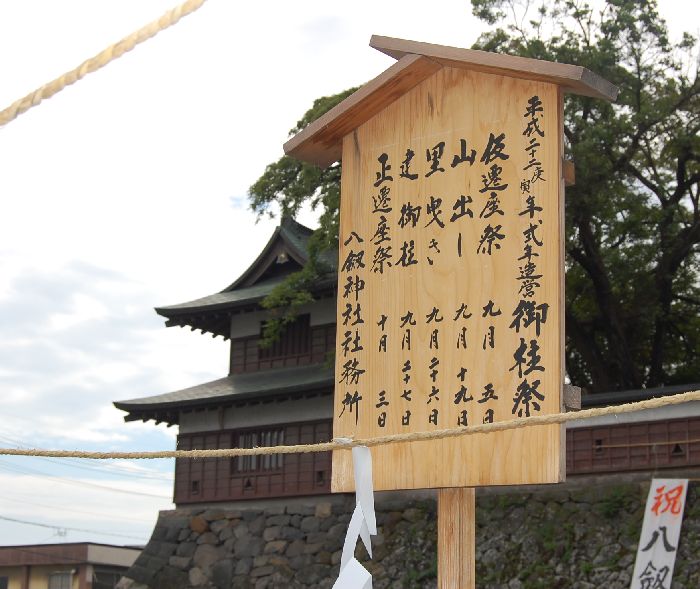 平成二十二庚寅年式年造営御柱祭
仮遷座祭 九月 五日
山出し 九月 十九日
里曳き 九月 二十六日
建御柱 九月 二十七日
正遷座祭 十月 三日
八剱神社社務所
祝 八剱